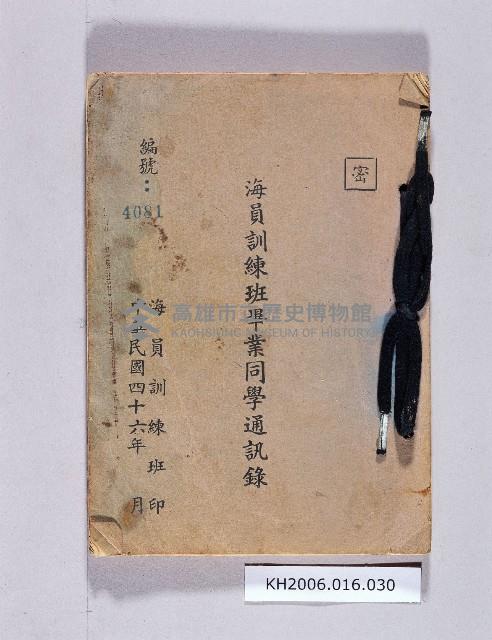 密
海員訓練班畢業同學通訊錄
編號：
4081
海員訓練班印
中華民國四十六年 月
高雄市立歷史博物館
KAOHSIUNG MUSEUM OF HISTORY
KH2006.016.030